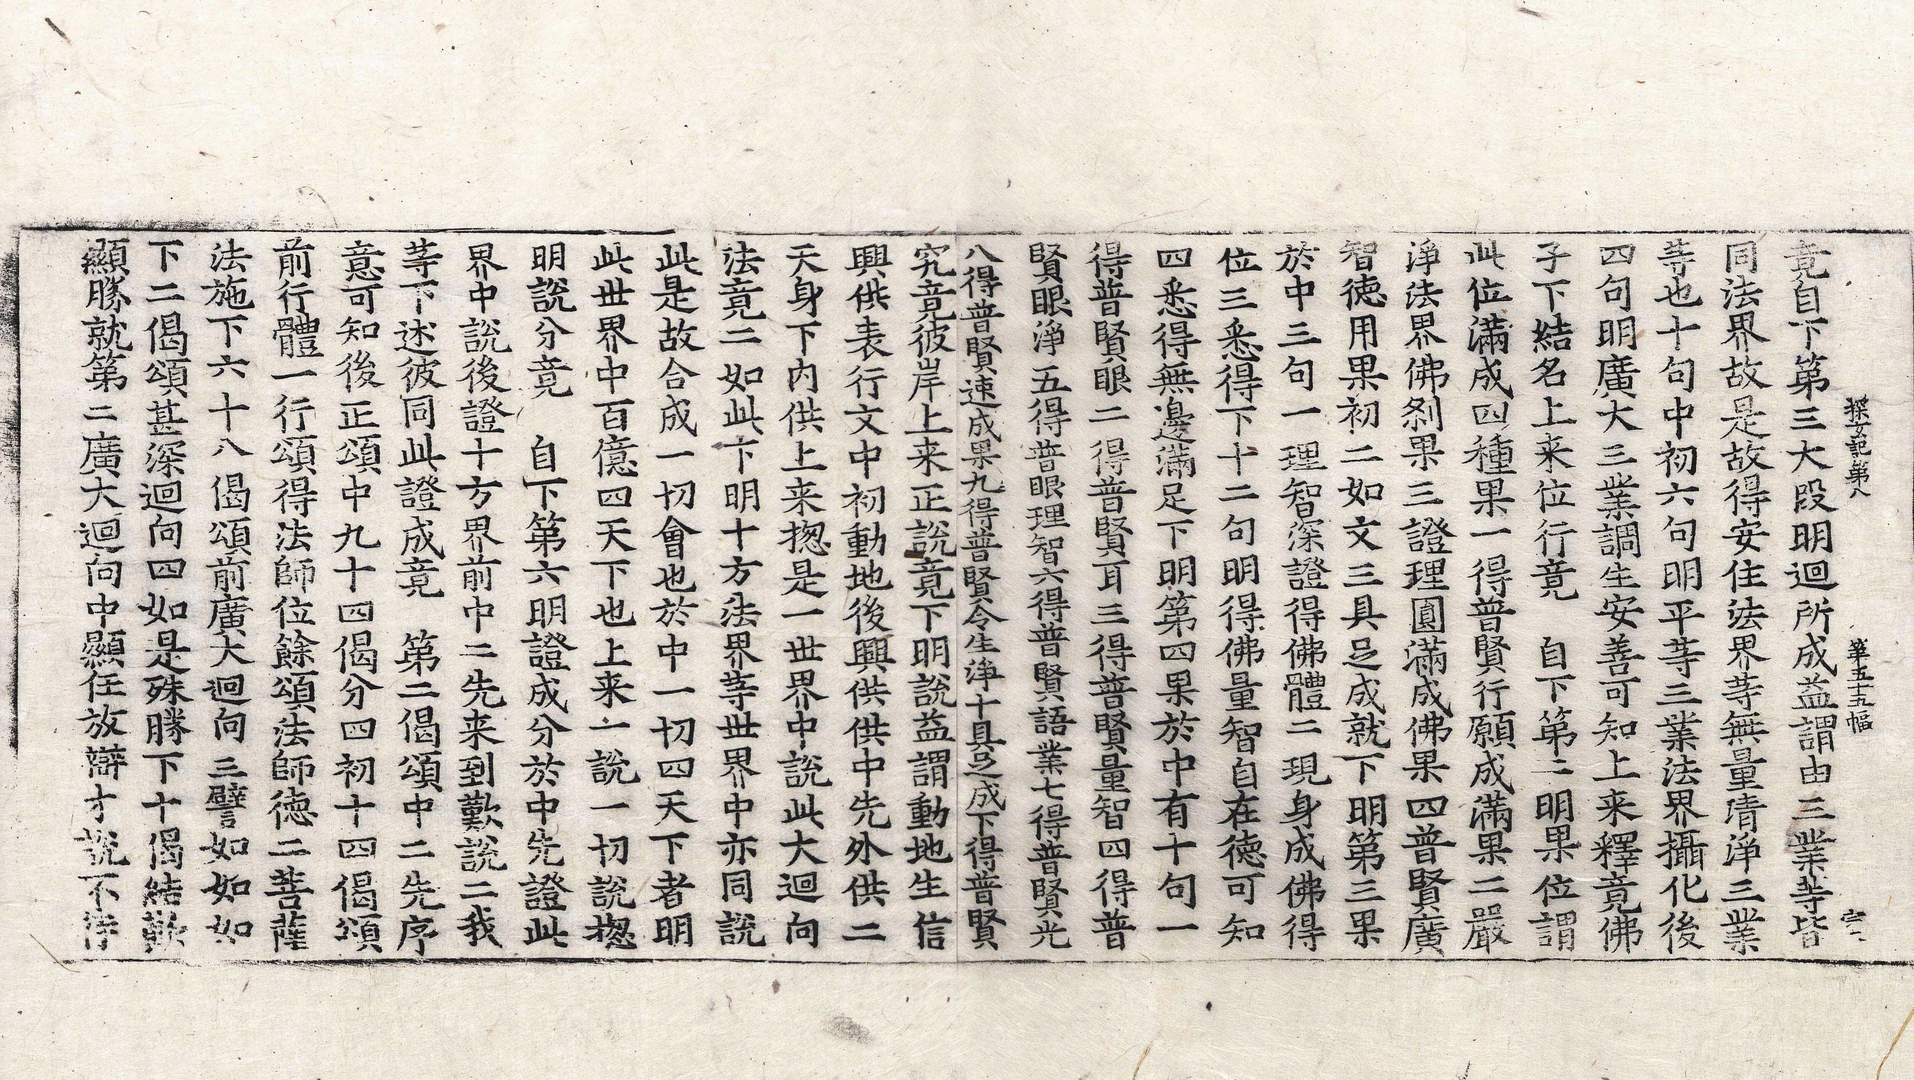 探玄記第八 第五十五幅 宝
竟自下第三大段明迴所成益謂由三業等皆
同法界故是故得安住法界等無量清淨三業
等也十句中初六句明平等三業法界攝化後
四句明廣大三業調生安善可知上来釋竟佛
子下結名上来位行竟 自下第二明果位謂
此位滿成四種果一得普賢行願成滿果二嚴
淨法界佛刹果三證理圓滿成佛果四普賢廣
智德用果初二如文三具足成就下明第三果
於中三句一理智深證得佛體二現身成佛得
位三悉得下十二句明得佛量智自在德可知
四悉得無邊滿足下明第四果於中有十句一
得普賢眼二得普賢耳三得普賢量智四得普
賢眼淨五得普眼理智六得普賢語業七得普賢光
八得普賢速成果九得普賢令生淨十具足成下得普賢
究竟彼岸上来正說竟下明說益謂動地生信
興供表行文中初動地後興供供中先外供二
天身下內供上来揔是一世界中說此大迴向
法竟二如此下明十方法界等世界中亦同說
此是故合成一切會也於中一切四天下者明
此世界中百億四天下也上来一說一切說揔
明說分竟 自下第六明證成分於中先證此
界中說後證十方界前中二先来到歎說二我
等下述彼同此證成竟 第二偈頌中二先序
意可知後正頌中九十四偈分四初十四偈頌
前行體一行頌得法師位餘頌法師德二菩薩
法施下六十八偈頌前廣大迴向三譬如如如
下二偈頌甚深迴向四如是殊勝下十偈結歎
顯勝就第二廣大迴向中顯任放辯才說不待